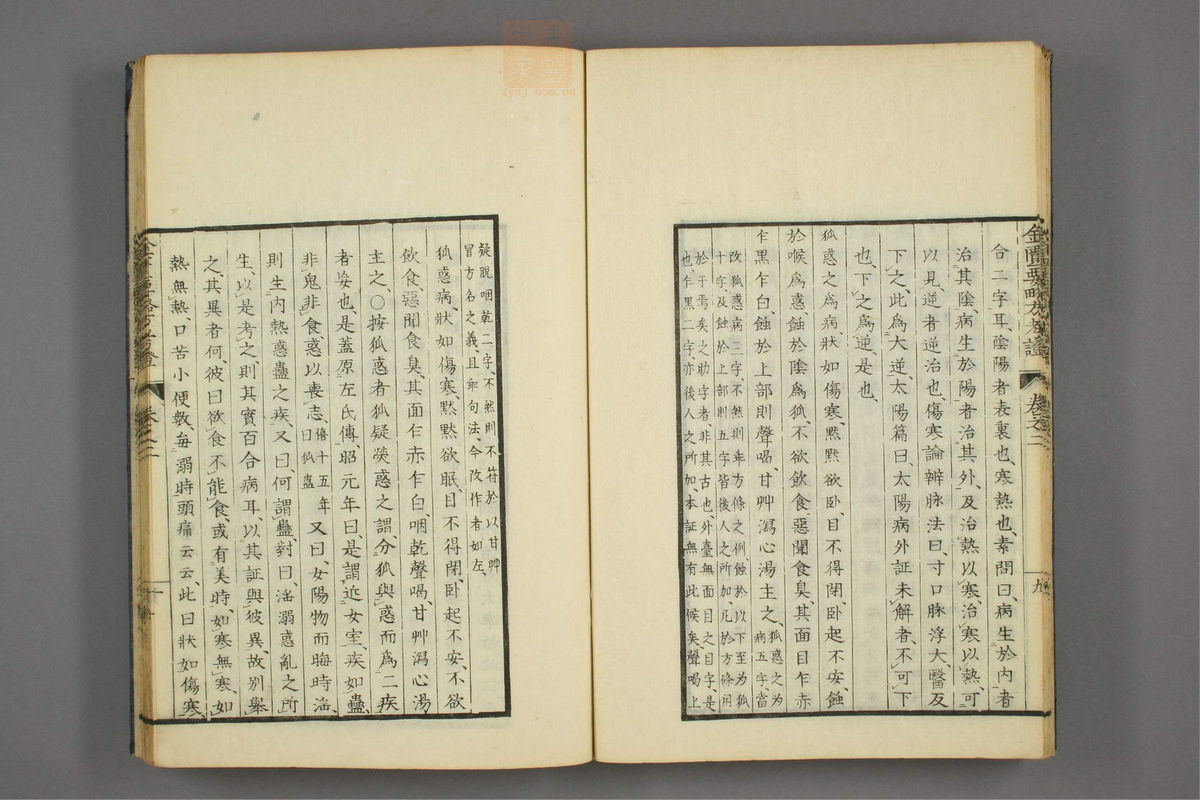 金匱要略方考證 卷之二 九
合二字耳、陰陽者表裏也、寒熱也、素問曰、病生於內者
治其陰、病生於陽者治其外、及治熱以寒、治寒以熱、可
以見、逆者逆治也、傷寒論辨脉法曰、寸口脉浮大、醫反
下之、此爲大逆、太陽篇曰、太陽病外証未解者、不可下
也、下之爲逆、是也、
狐惑之爲病、狀如傷寒、黙黙欲卧、目不得閉、卧起不安、蝕
於喉爲惑、蝕於陰爲狐、不欲飲食、惡聞食臭、其面目乍赤
乍黒乍白、蝕於上部則聲喝、甘艸瀉心湯主之、狐惑之爲
病五字、當
改狐惑病三字、不然則乖方條之例、蝕於以下至爲狐
十字、及蝕於上部則五字、皆後人之所加、凡於方條用
於于焉矣之助字者、非其古也、外臺無面目之目字、是
也、乍黒二字、亦後人之所加、本証無有此候矣、聲喝上
疑脫咽乾二字、不然則不符於以甘艸
冒方名之義、且乖句法、今改作者如左、
狐惑病、狀如傷寒、黙黙欲眠、目不得閉、卧起不安、不欲
飲食、惡聞食臭、其面乍赤乍白、咽乾聲喝、甘艸瀉心湯
主之、○按狐惑者狐疑熒惑之謂、分狐與惑而爲二疾
者妄也、是蓋原左氏傳、昭元年曰、是謂近女室、疾如蠱、
非鬼非食、惑以喪志、僖十五年
曰狐蠱
又曰、女陽物而晦時、淫
則生內熱惑蠱之疾、又曰、何謂蠱、對曰、淫溺惑亂之所
生、以是考之、則其實百合病耳、以其証與彼異、故別舉
之、其異者何、彼曰欲食不能食、或有美時、如寒無寒、如
熱無熱、口苦小便數、每溺時頭痛云云、此曰狀如傷寒、
卷之二